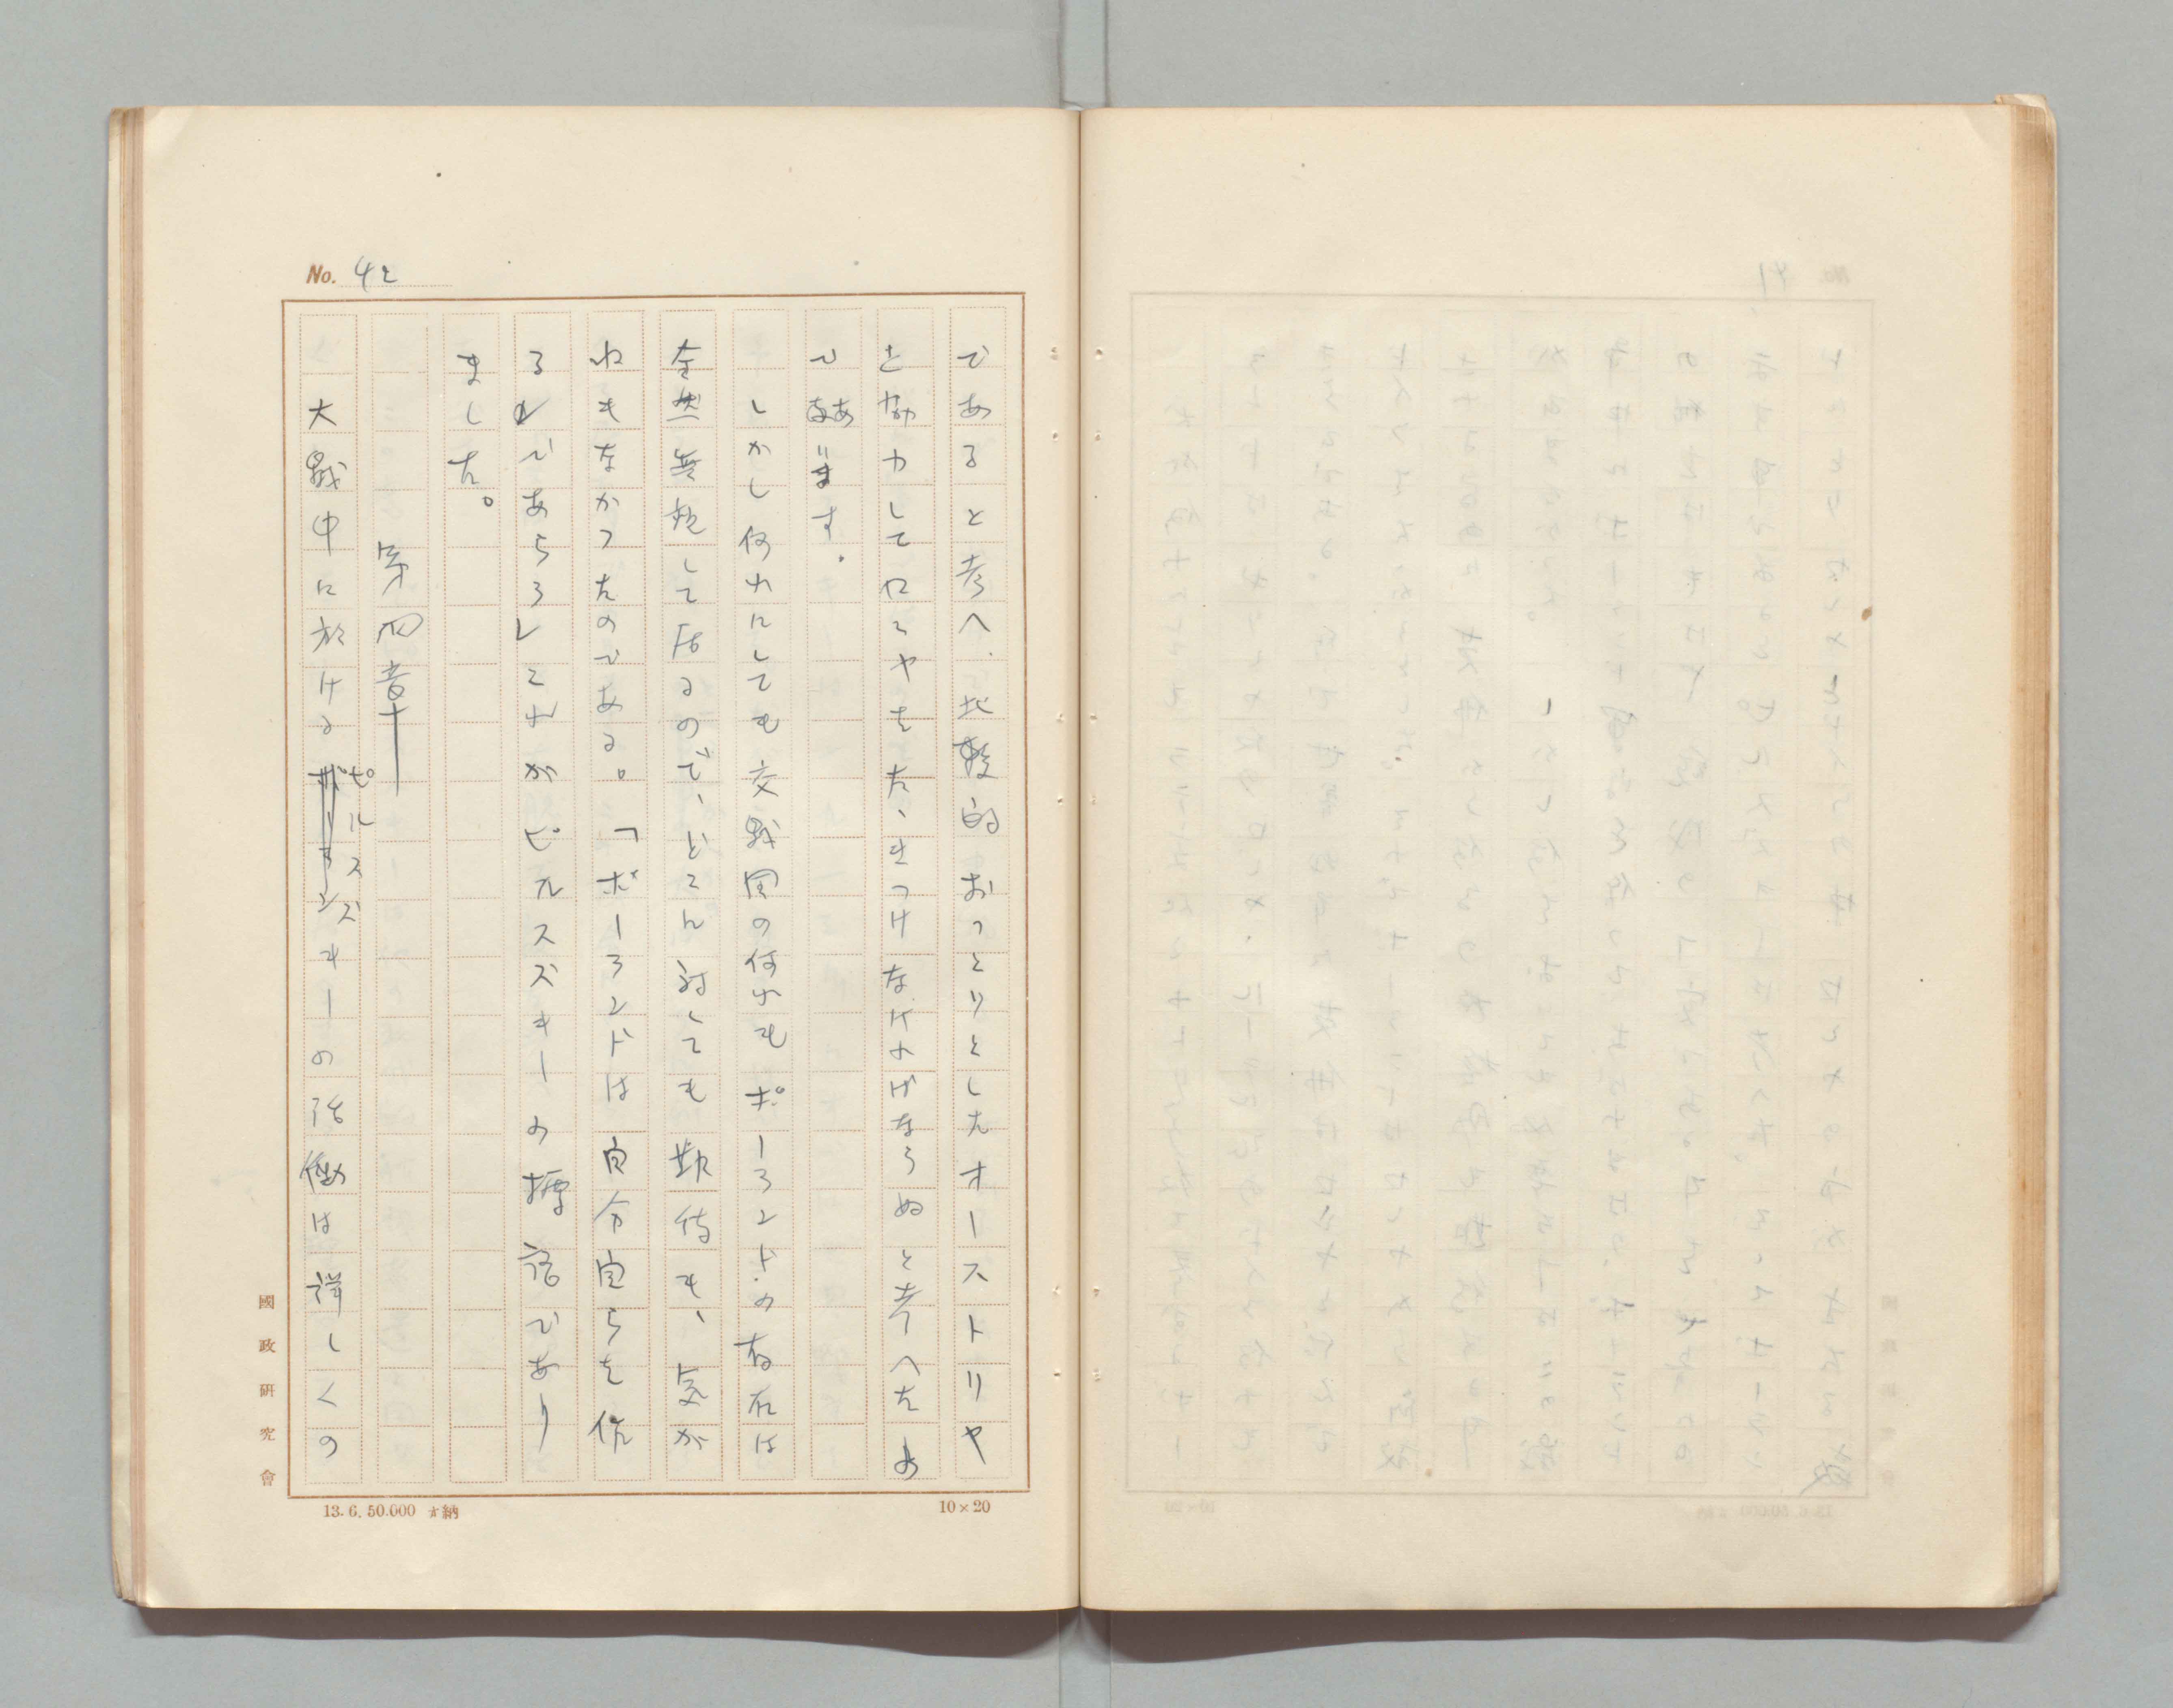 No. 42
であると考へ、比較的おっとりとしたオーストリヤ
と協力してロシヤをたゝきつけなければならぬと考へたの
であります。
しかし何れにしても交戦国の何れもポーランドの存在は
全然無視して居るので、どこに対しても期待も、気が
ねもなかつたのである。「ポーランドは自分自らを作
る」であらう」これがピルスズキーの標語であり
ました。
第四章
大戦中に於けるピルスズキーの活動は詳しくの
國政研究會
13. 6. 50.000 納
10×20